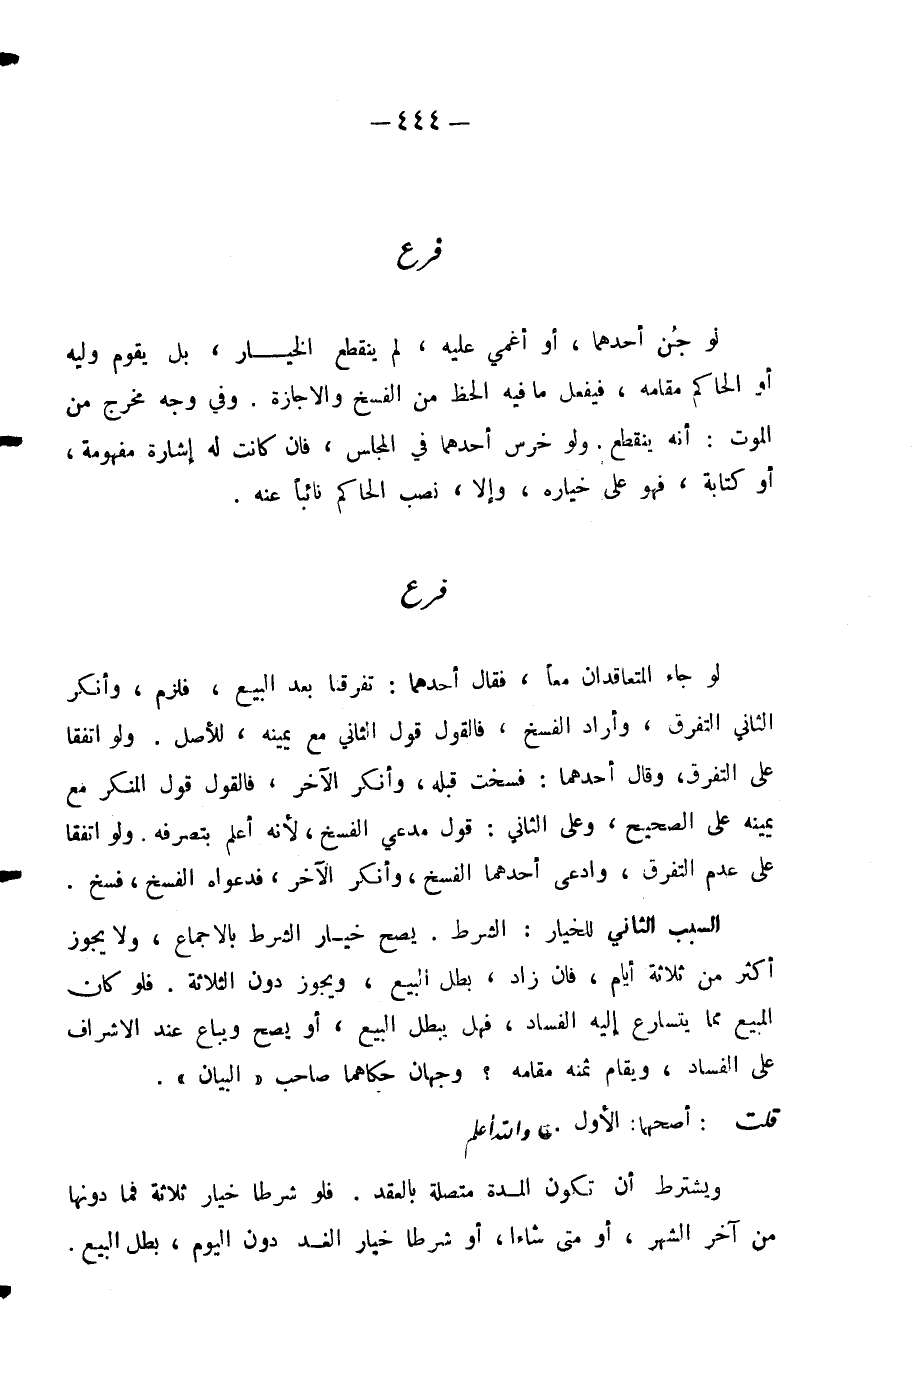 — ٤٤٤ —
فرع
لو جُن أحدهما ، أو أغمي عليه ، لم ينقطع الخيــــار ، بل يقوم وليه
أو الحاكم مقامه ، فيفعل ما فيه الحظ من الفسخ والاجازة . وفي وجه مخرج من
الموت : أنه ينقطع . ولو خرس أحدهما في المجلس ، فان كانت له إشارة مفهومة ،
أو كتابة ، فهو على خياره ، وإلا ، نصب الحاكم نائباً عنه .
فرع
لو جاء المتعاقدان معاً ، فقال أحدهما : تفرقنا بعد البيع ، فلزم ، وأنكر
الثاني التفرق ، وأراد الفسخ ، فالقول قول الثاني مع يمينه ، للأصل . ولو اتفقا
على التفرق، وقال أحدهما : فسخت قبله، وأنكر الآخر ، فالقول قول المنكر مع
يمينه على الصحيح ، وعلى الثاني : قول مدعي الفسخ، لأنه أعلم بتصرفه . ولو اتفقا
على عدم التفرق ، وادعى أحدهما الفسخ ، وأنكر الآخر ، فدعواه الفسخ ، فسخ .
السبب الثاني للخيار : الشرط . يصح خيـار الشرط بالاجماع ، ولا يجوز
أكثر من ثلاثة أيام ، فان زاد ، بطل البيع ، ويجوز دون الثلاثة . فلو كان
المبيع مما يتسارع إليه الفساد ، فهل يبطل البيع ، أو يصح ويباع عند الاشراف
على الفساد ، ويقام ثمنه مقامه ؟ وجهان حكاهما صاحب « البيان » .
قلت : أصحها: الأول . والله أعلم
ويشترط أن تكون المـدة متصلة بالعقد . فلو شرطا خيار ثلاثة فما دونها
من آخر الشهر ، أو متى شاءا، أو شرطا خيار الغـد دون اليوم ، بطل البيع .